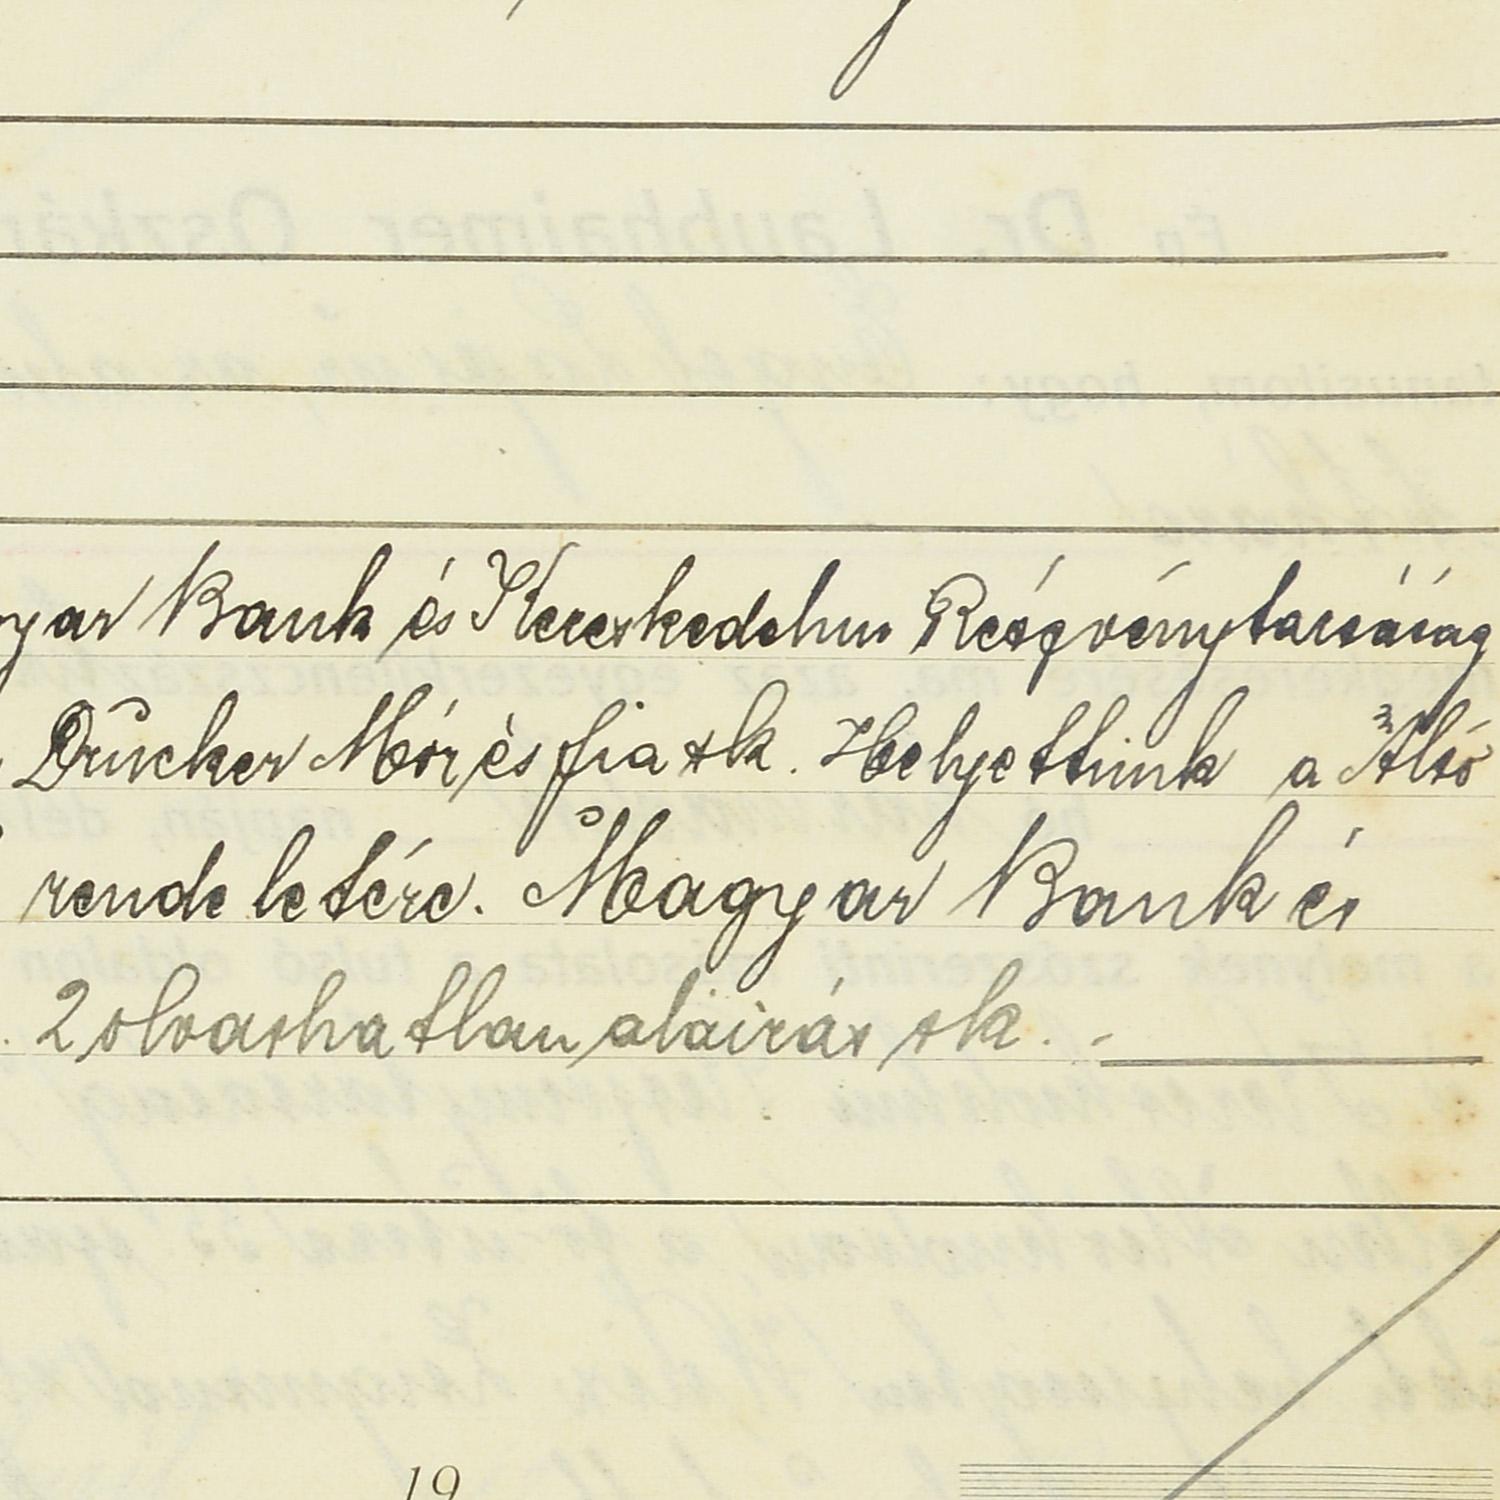 gyar Bank és Kereskedelmi Részvénytársaság
Drucker Mór és fia sk. Helyettünk a Alsó
rendeletére. Magyar Bank és
2 olvashatlan aláirás sk. -
19